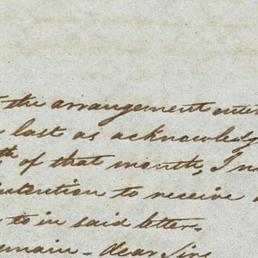 the arrangement
last as acknowledg
th of that month, I n
ntention to receive
to in said letter.
emain - dear Sir